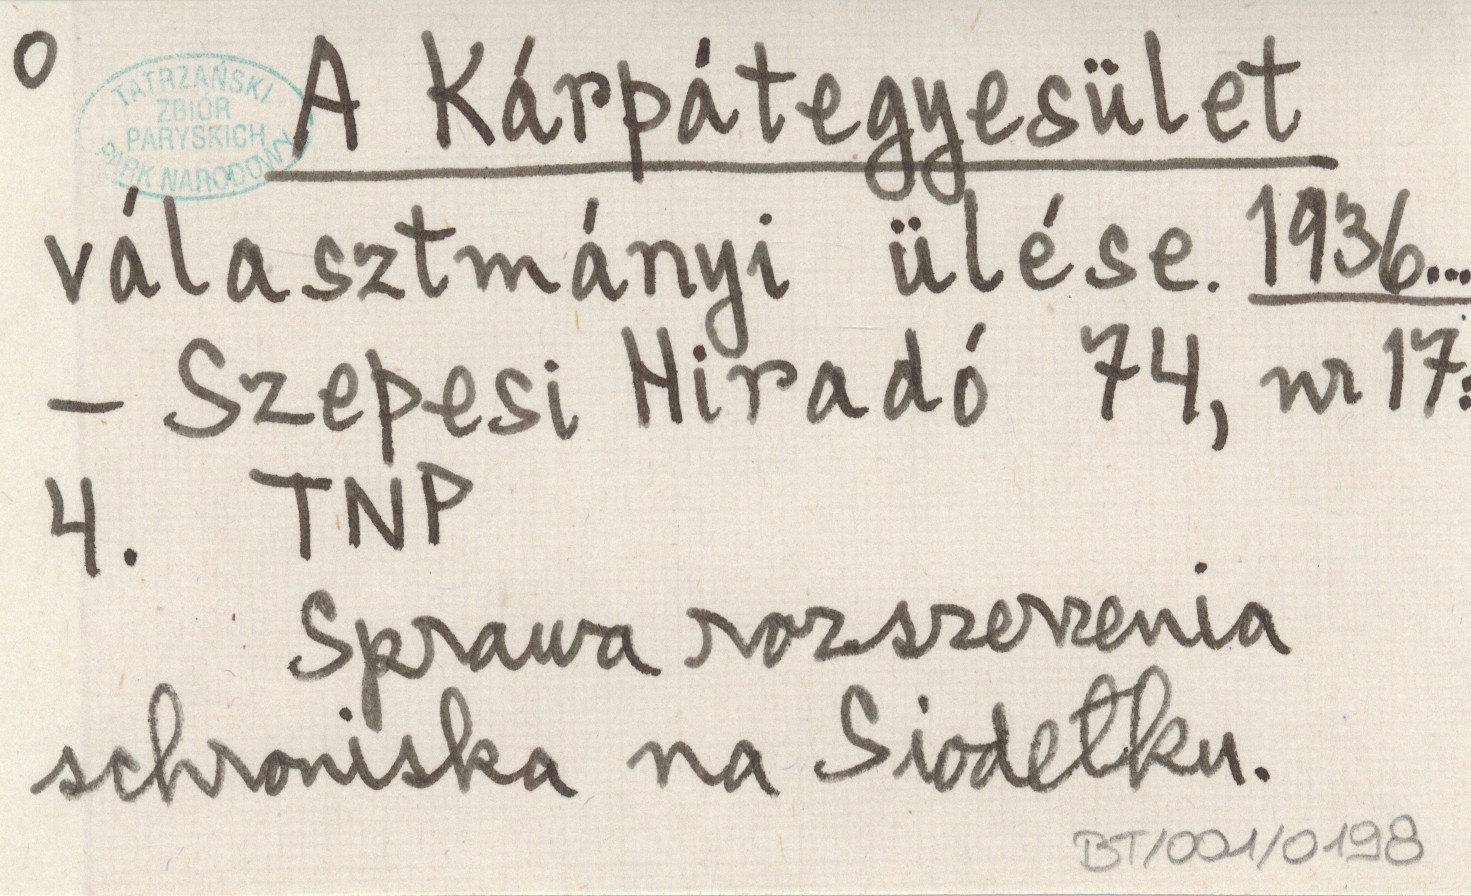 O
TATRZAŃSKI
ZBIÓR
PARYSKICH
PARK NARODOWY
A Kárpátegyesület
választmányi ülése. 1936...
– Szepesi Hiradó 74, nr 17:
4. TNP
Sprawa rozszerzenia
schroniska na Siodełku.
BT/001/0198